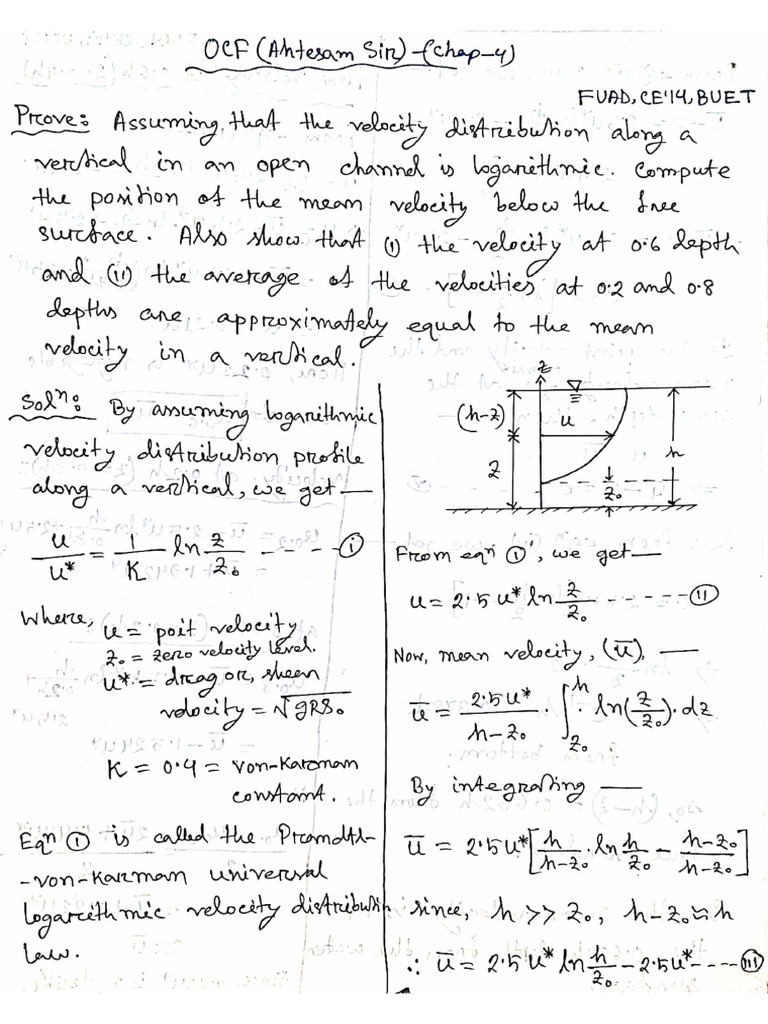 OCF (Ahtesam Sir) - (Chap-4)
FUAD, CE'14, BUET
Prove: Assuming that the velocity distribution along a
vertical in an open channel is logarithmic. Compute
the position of the mean velocity below the free
surface. Also show that (i) the velocity at 0.6 depth
and (ii) the average of the velocities at 0.2 and 0.8
depths are approximately equal to the mean
velocity in a vertical.
Solⁿ: By assuming logarithmic
velocity distribution profile
along a vertical, we get —
u/u* = 1/K ln z/z₀ - - - - - (i)
Where, u = poit velocity
z₀ = zero velocity level.
u* = drag or, shear
velocity = √gRS₀
K = 0.4 = von-Karman
constant.
Eqⁿ (i) is called the Prandtl-
-von-Karman universal
logarithmic velocity distribution
law.
z
(h-z)
u
h
z
z₀
From eqⁿ (i), we get —
u = 2.5 u* ln z/z₀ - - - - - - (ii)
Now, mean velocity, (ū), —
ū = 2.5u*/h-z₀ · ∫z₀^h ln(z/z₀) · dz
By integrating —
ū = 2.5u* [h/h-z₀ · ln h/z₀ - h-z₀/h-z₀]
since, h >> z₀, h-z₀ ≈ h
∴ ū = 2.5u* ln h/z₀ - 2.5u* - - - - (iii)